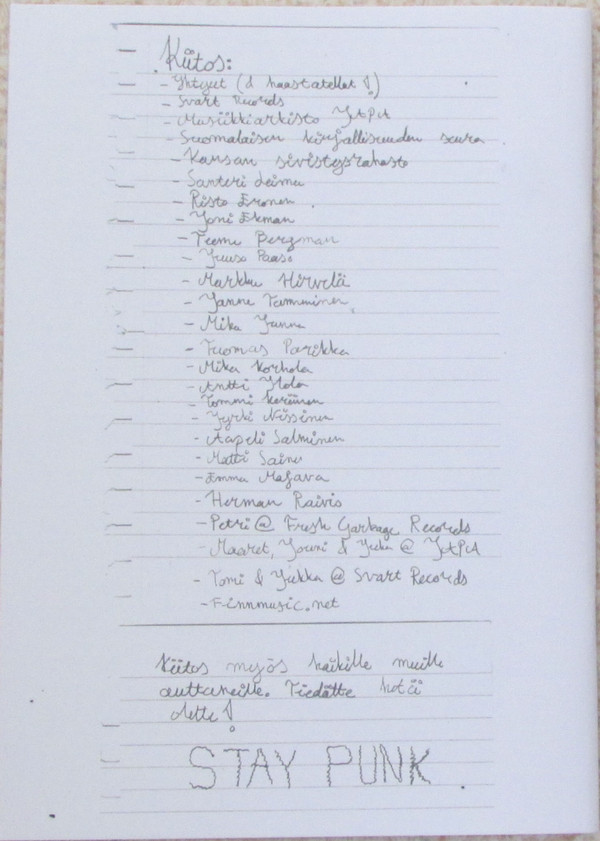 Kiitos:
- Yhtyeet (& haastatellut!)
- Svart Records
- Musiikkiarkisto JAPA
- Suomalaisen kirjallisuuden seura
- Kansan sivistysrahasto
- Santeri
- Risto Eronen
- Joni Ekman
- Teemu Bergman
- Juuso Paaso
- Markku Hirvelä
- Janne Tamminen
- Mika Janne
- Tuomas Parikka
- Mika Korhola
- Antti Ylola
- Tommi Keränen
- Jyrki Nissinen
- Aapeli Salminen
- Matti Saino
- Emma Majava
- Herman Raivio
- Petri @ Fresh Garbage Records
- Maaret, Jouni & Juha @ JAPA
- Tomi & Jukka @ Svart Records
- Finnmusic.net
Kiitos myös kaikille muille
auttaneille. Tiedätte ketä
olette!
STAY PUNK.